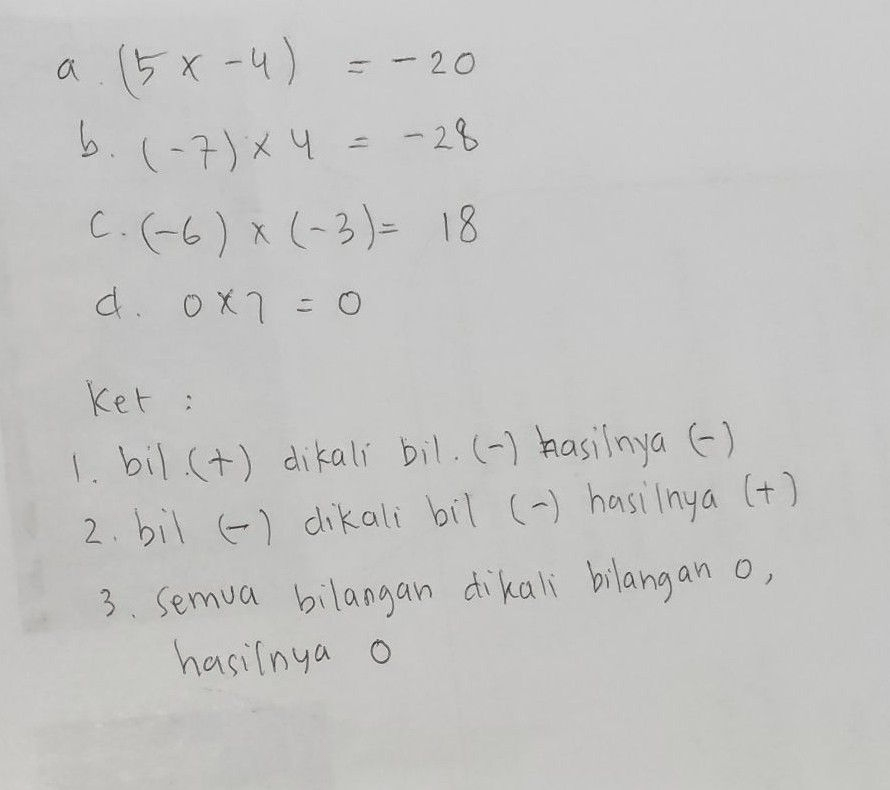 a. (5 x -4) = -20
b. (-7) x 4 = -28
c. (-6) x (-3) = 18
d. 0 x 7 = 0
Ket :
1. bil.(+) dikali bil. (-) hasilnya (-)
2. bil (-) dikali bil (-) hasilnya (+)
3. Semua bilangan dikali bilangan 0,
hasilnya 0